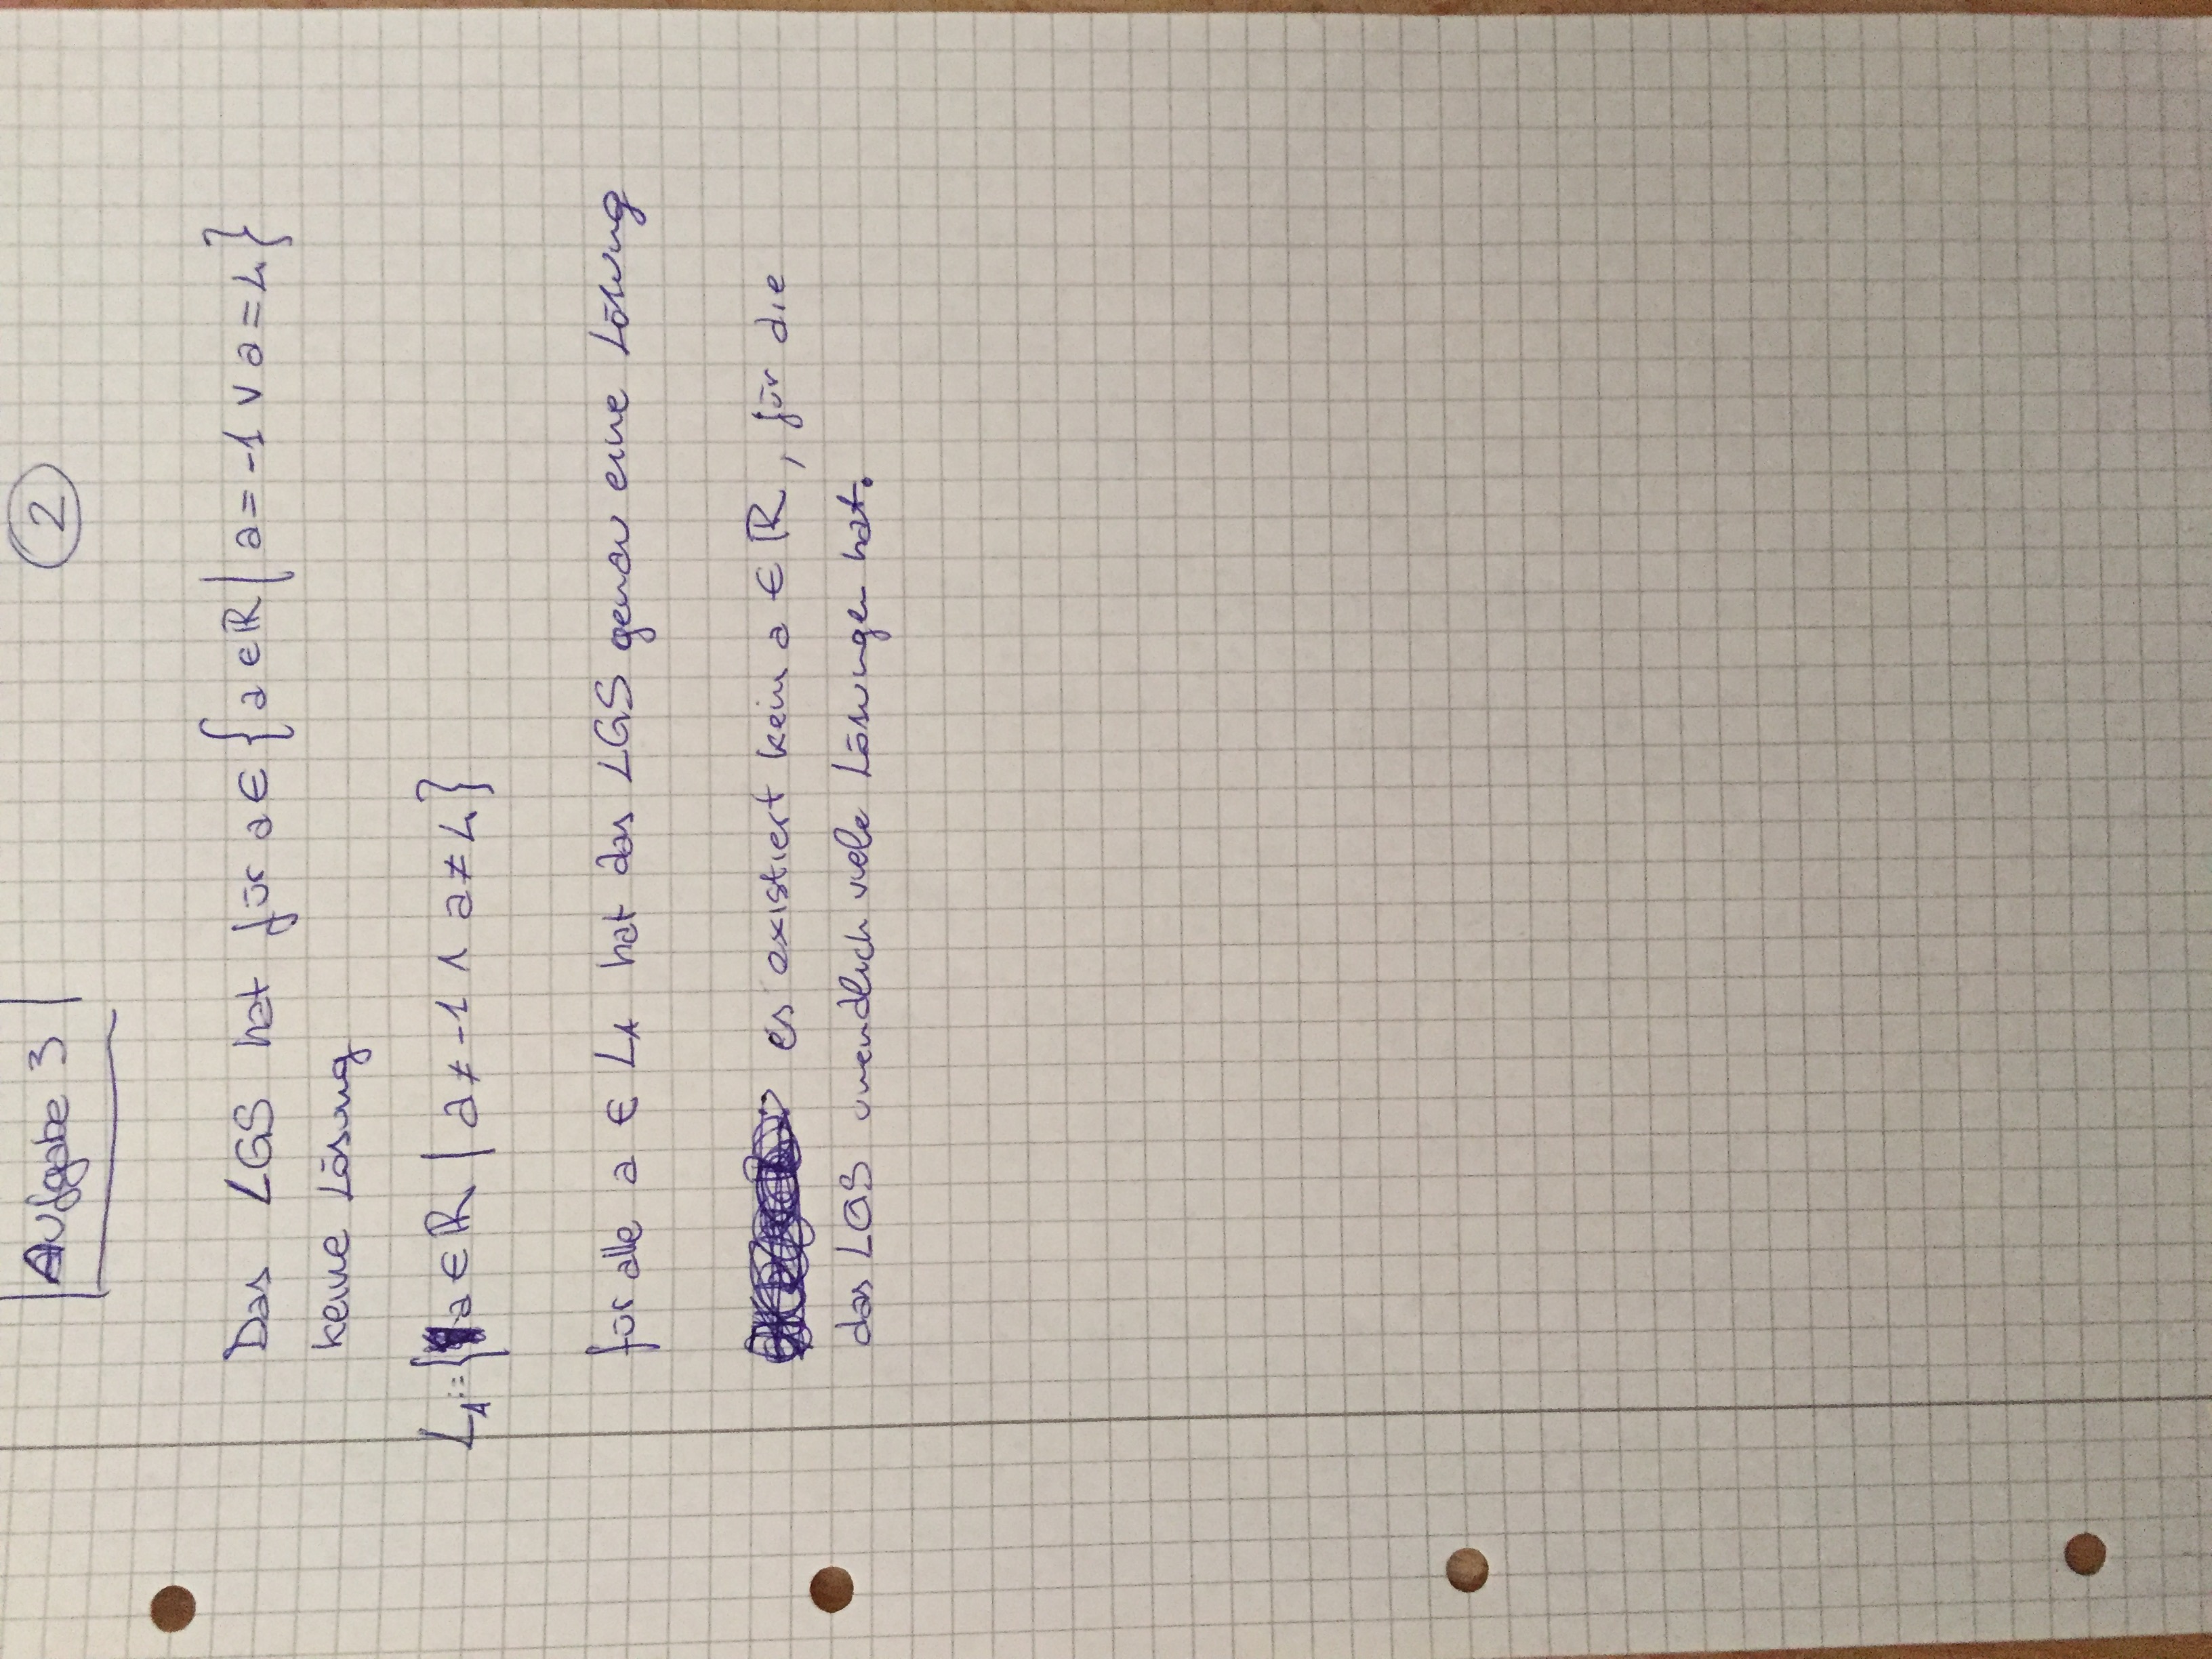 Aufgabe 3
2
Das LGS hat für a ∈ {a ∈ ℝ | a = -1 ∨ a = 4}
keine Lösung
L₁ := {a ∈ ℝ | a ≠ -1 ∧ a ≠ 4}
für alle a ∈ L₁ hat das LGS genau eine Lösung
es existiert kein a ∈ ℝ, für die
das LGS unendlich viele Lösungen hat.